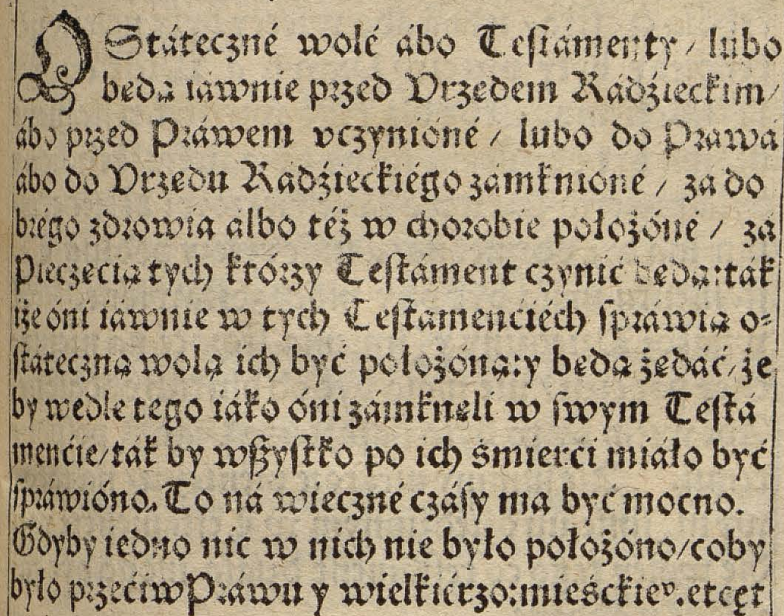 OStáteczné wolé ábo Testámenty / lubo
bedą iáwnie przed Vrzedem Rádźieckim /
ábo przed Práwem vczynióné / lubo do Prawa
ábo do Vrzedu Rádźieckiégo zámknioné / zá do
brégo zdrowia álbo też w chorobie położóné / zá
Pieczecią tych którzy Testáment czynić będą: ták
iże óni iáwnie w tych Testamenciéch spráwią o-
státeczną wolą ich być położóną: y bedą żędáć / że
by wedle tego iáko óni zámkneli w swym Testá
menćie / ták by wszystko po ich śmierći miáło być
spráwióno. To ná wieczné czásy ma być mocno.
Gdyby iedno nic w nich nie było położóno / coby
było przećiw Práwu y wielkiérzo: mieśckiev. etcęt